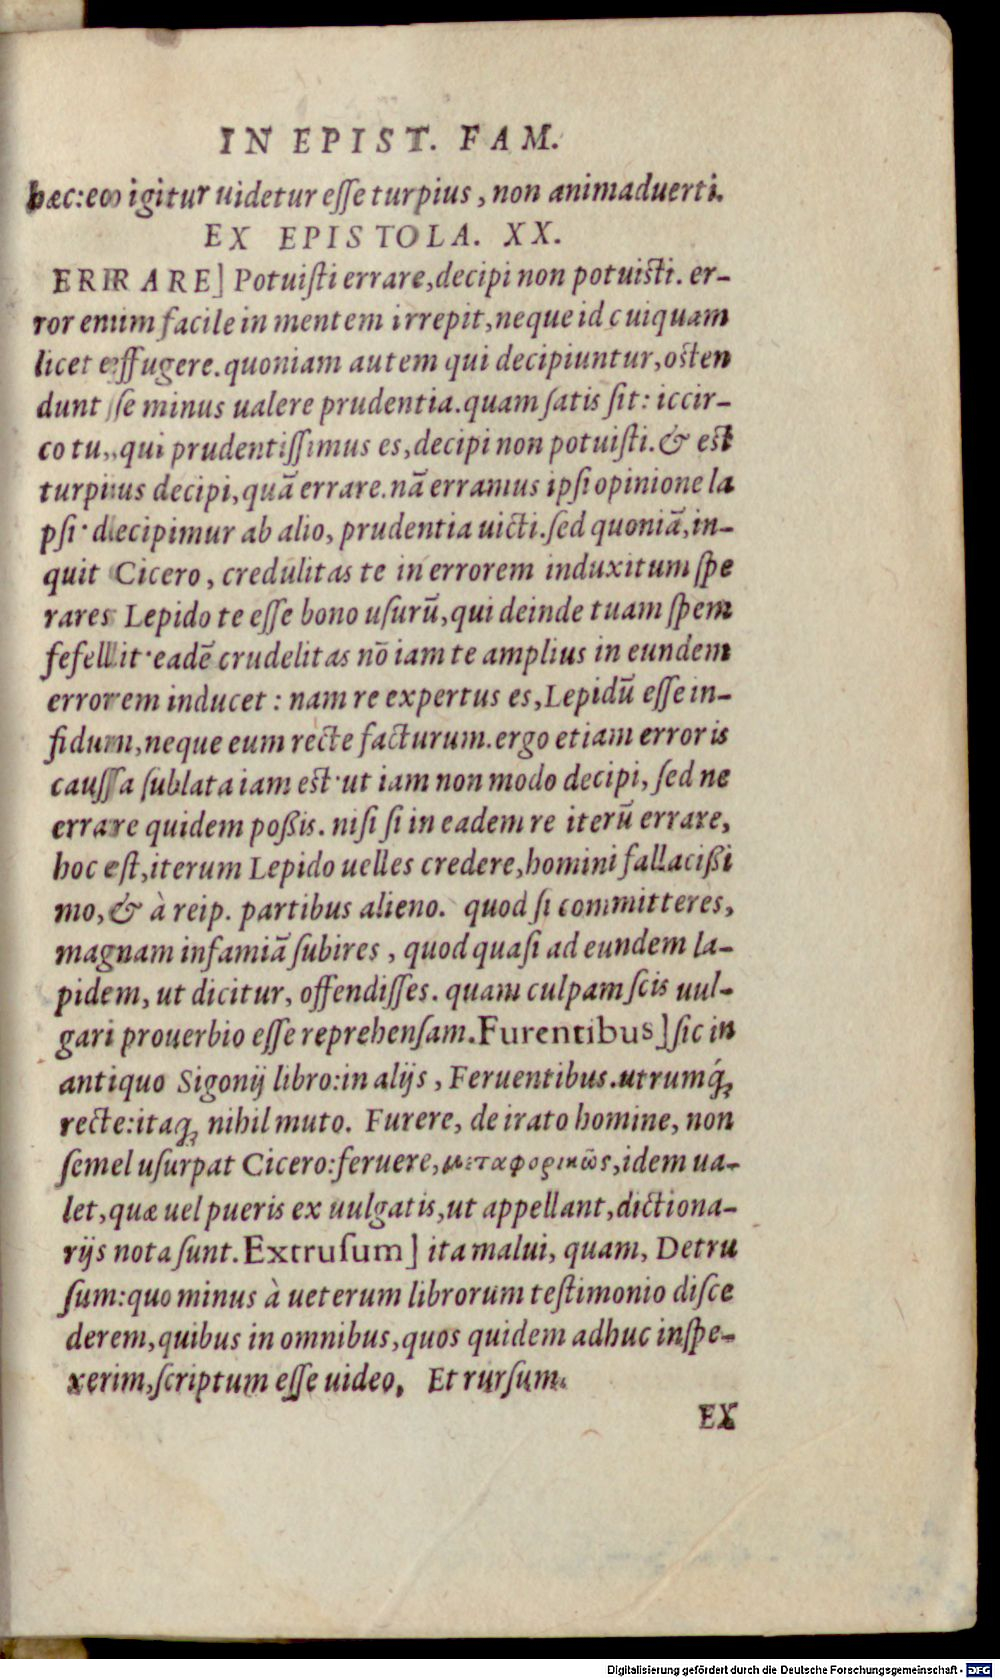 IN EPIST. FAM.
hæc: eo igitur uidetur esse turpius, non animaduerti.
EX EPISTOLA. XX.
ERRARE] Potuisti errare, decipi non potuisti. er-
ror enim facile in mentem irrepit, neque id cuiquam
licet effugere. quoniam autem qui decipiuntur, osten
dunt se minus ualere prudentia. quam satis sit: iccir-
co tu, qui prudentissimus es, decipi non potuisti. & est
turpius decipi, quā errare. nā erramus ipsi opinione la
psi· decipimur ab alio, prudentia uicti. sed quoniā, in-
quit Cicero, credulitas te in errorem induxit um spe
rares Lepido te esse bono usurū, qui deinde tuam spem
fefellit· eadē crudelitas nō iam te amplius in eundem
errorem inducet: nam re expertus es, Lepidū esse in-
fidum, neque eum recte facturum. ergo etiam erroris
caussa sublata iam est· ut iam non modo decipi, sed ne
errare quidem poßis. nisi si in eadem re iterū errare,
hoc est, iterum Lepido uelles credere, homini fallacißi
mo, & à reip. partibus alieno. quod si committeres,
magnam infamiā subires, quod quasi ad eundem la-
pidem, ut dicitur, offendisses. quam culpam scis uul-
gari prouerbio esse reprehensam. Furentibus] sic in
antiquo Sigonij libro: in alijs, Feruentibus. utrumq́;
recte: itaq; nihil muto. Furere, de irato homine, non
semel usurpat Cicero: feruere, μεταφορικῶς, idem ua-
let, quæ uel pueris ex uulgatis, ut appellant, dictiona-
rijs nota sunt. Extrusum] ita malui, quam, Detru
sum: quo minus à ueterum librorum testimonio disce
derem, quibus in omnibus, quos quidem adhuc inspe-
xerim, scriptum esse uideo, Et rursum.
EX
Digitalisierung gefördert durch die Deutsche Forschungsgemeinschaft - DFG